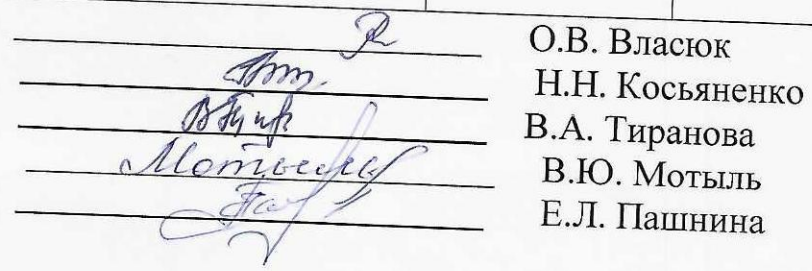 О.В. Власюк
Н.Н. Косьяненко
В.А. Тиранова
Мотыль В.Ю. Мотыль
Е.Л. Пашнина